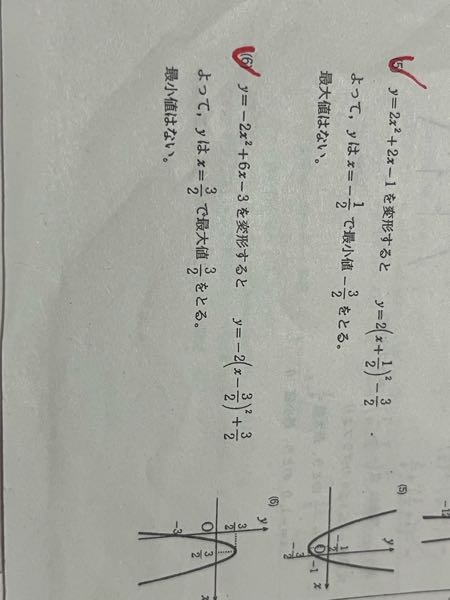 (5) y=2x²+2x−1 を変形すると y=2(x+1/2)²−3/2
よって，y は x=−1/2 で最小値 −3/2 をとる。
最大値はない。
(5)
y
−1/2
O
x
−1
−3/2
(6) y=−2x²+6x−3 を変形すると y=−2(x−3/2)²+3/2
よって，y は x=3/2 で最大値 3/2 をとる。
最小値はない。
(6)
y
3/2
O
3/2
x
−3